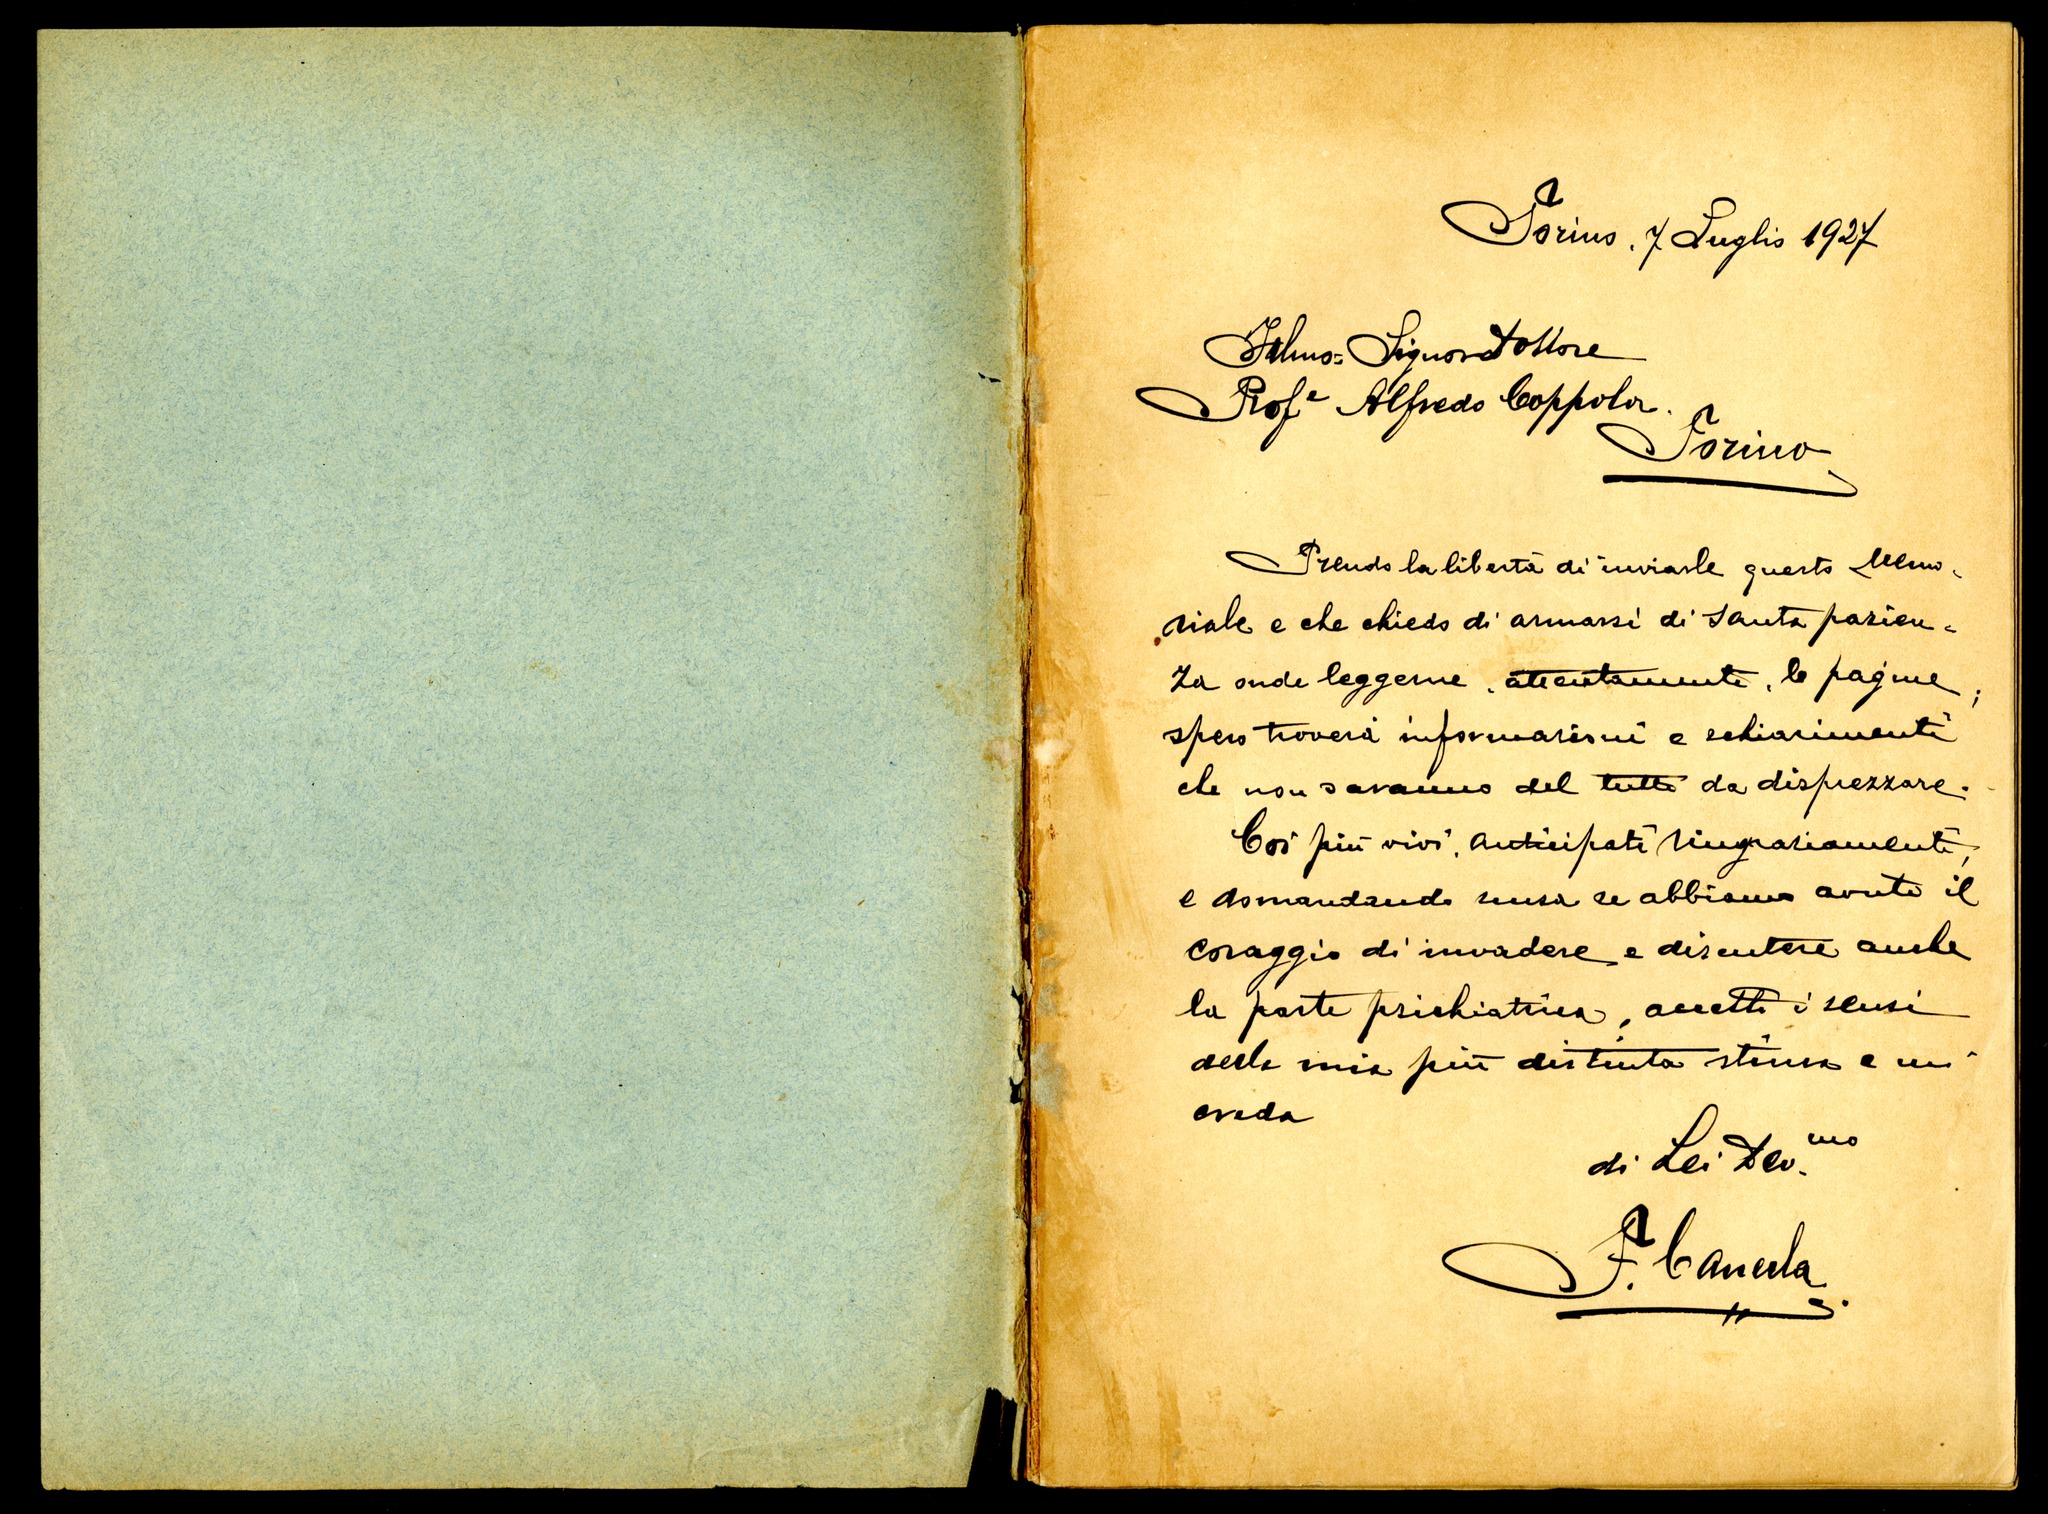 Torino, 7 Luglio 1927
Illmo= Signor Dottore
Prof.e Alfredo Coppola.
Torino
Prendo la libertà di inviarle questo Memo-
riale e che chiedo di armarsi di santa pazien-
za onde leggerne, attentamente, le pagine;
spero troverà informazioni e schiarimenti
che non saranno del tutto da disprezzare.
Coi più vivi, anticipati ringraziamenti,
e domandando scusa se abbiamo avuto il
coraggio di invadere e discutere anche
la parte psichiatrica, accetti i sensi
della mia più distinta stima e mi
creda
di Lei Dev.mo
F. Canella